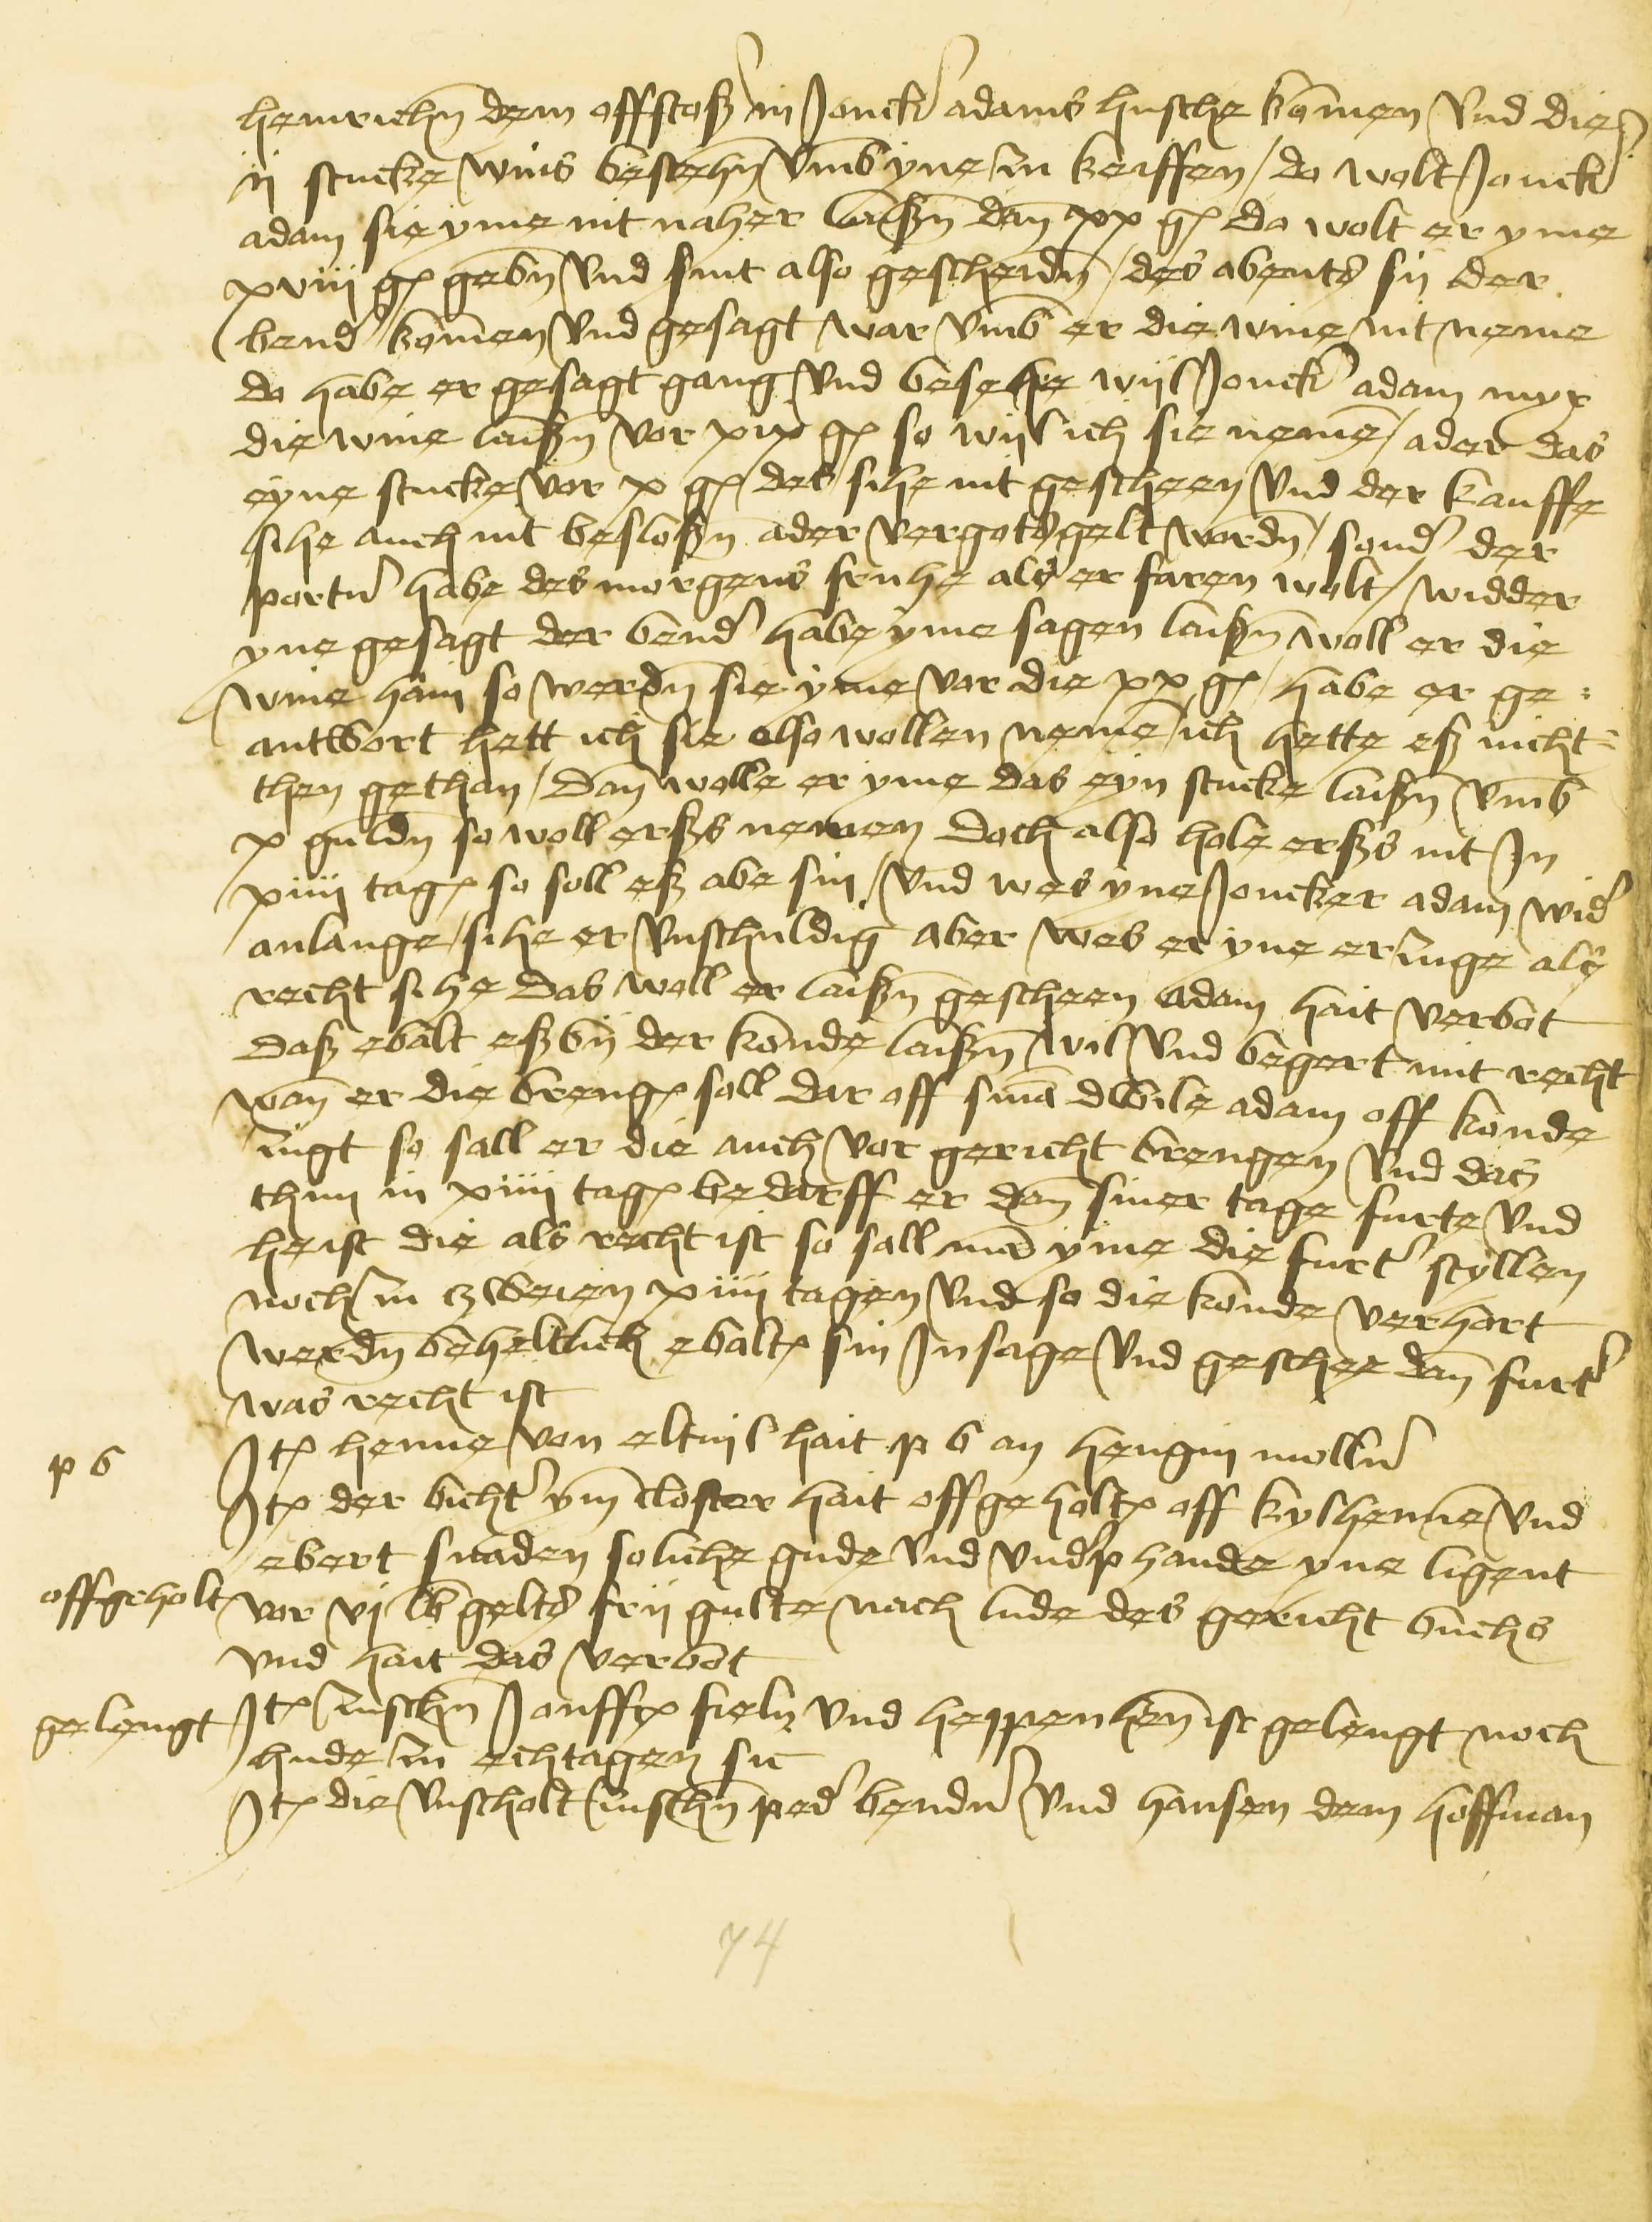 heinrichn dem offstoß in Jonck adams husche komen vnd die
ij stucke wins besehn vmb yne zu keiffen / do wolt Jonck
adam sie yme nit naher laißn dan xx gl do wolt er yme
xviij gl gebn vnd sint also gescheidn / des abents sij der
bend komen vnd gesagt war vmb er die wine nit neme
do habe er gesagt gang vnd besehe wijl Jonck adam myr
die wine laißn vor xix gl so wijl ich sie neme / ader das
eyne stucke vor x gl / des sihe nit gescheen vnd der kauffe
sihe auch nit besloßn ader vergotsgelt wordn / sond der
portn habe des morgens fruhe als er faren wolt / widder
yne gesagt der bend habe yme sagen laißn woll er die
wine hain so werdn sie yme vor die xx gl / habe er ge-
antwort hett ich sie also wollen neme / ich hette eß nicht-
then gethan / Dan wolle er yme das eyn stucke laißn vmb
x guldn so woll erßs nemen Doch also hole erßs nit Jn
xiiij tagen so soll eß abe sin / vnd wes yne Joncker adam wid
anlange / sihe er vnschuldig aber wes er yne erzuge als
recht sihe das woll er laißn gescheen Adam hait verbot
Daß ebalt eß bij der konde laißn wil vnd begert mit recht
wan er die brengen soll dar off sinā dwile adam off konde
zugt so sall er die auch vor gericht brengen vnd das
thun in xiiij tagen bedarff er dan siner tage furte vnd
heist die als recht ist so sall mā yme die furt styllen
noch zu zweien xiiij tagen vnd so die konde verhort
werdn beheltlich ebalt sin Jnsage vnd geschee dan furt
was recht ist
p b
Jt henne von eltuil hait p b an hengin molln
Jt der bicht ym closter hait offgeholt off kylhenne vnd
ebert snaden soliche gude vnd vndp hande yne ligent
offgeholt vor vj lb gelts frij gulte nach lude des gericht buchs
vnd hait das verbot
gelengt Jt zuschn Jonff fieln vnd heppenhen ist gelengt noch
hude zu echtagen sic
Jt die vnscholt zuschn ped bendn vnd hansen dem hoffman
74